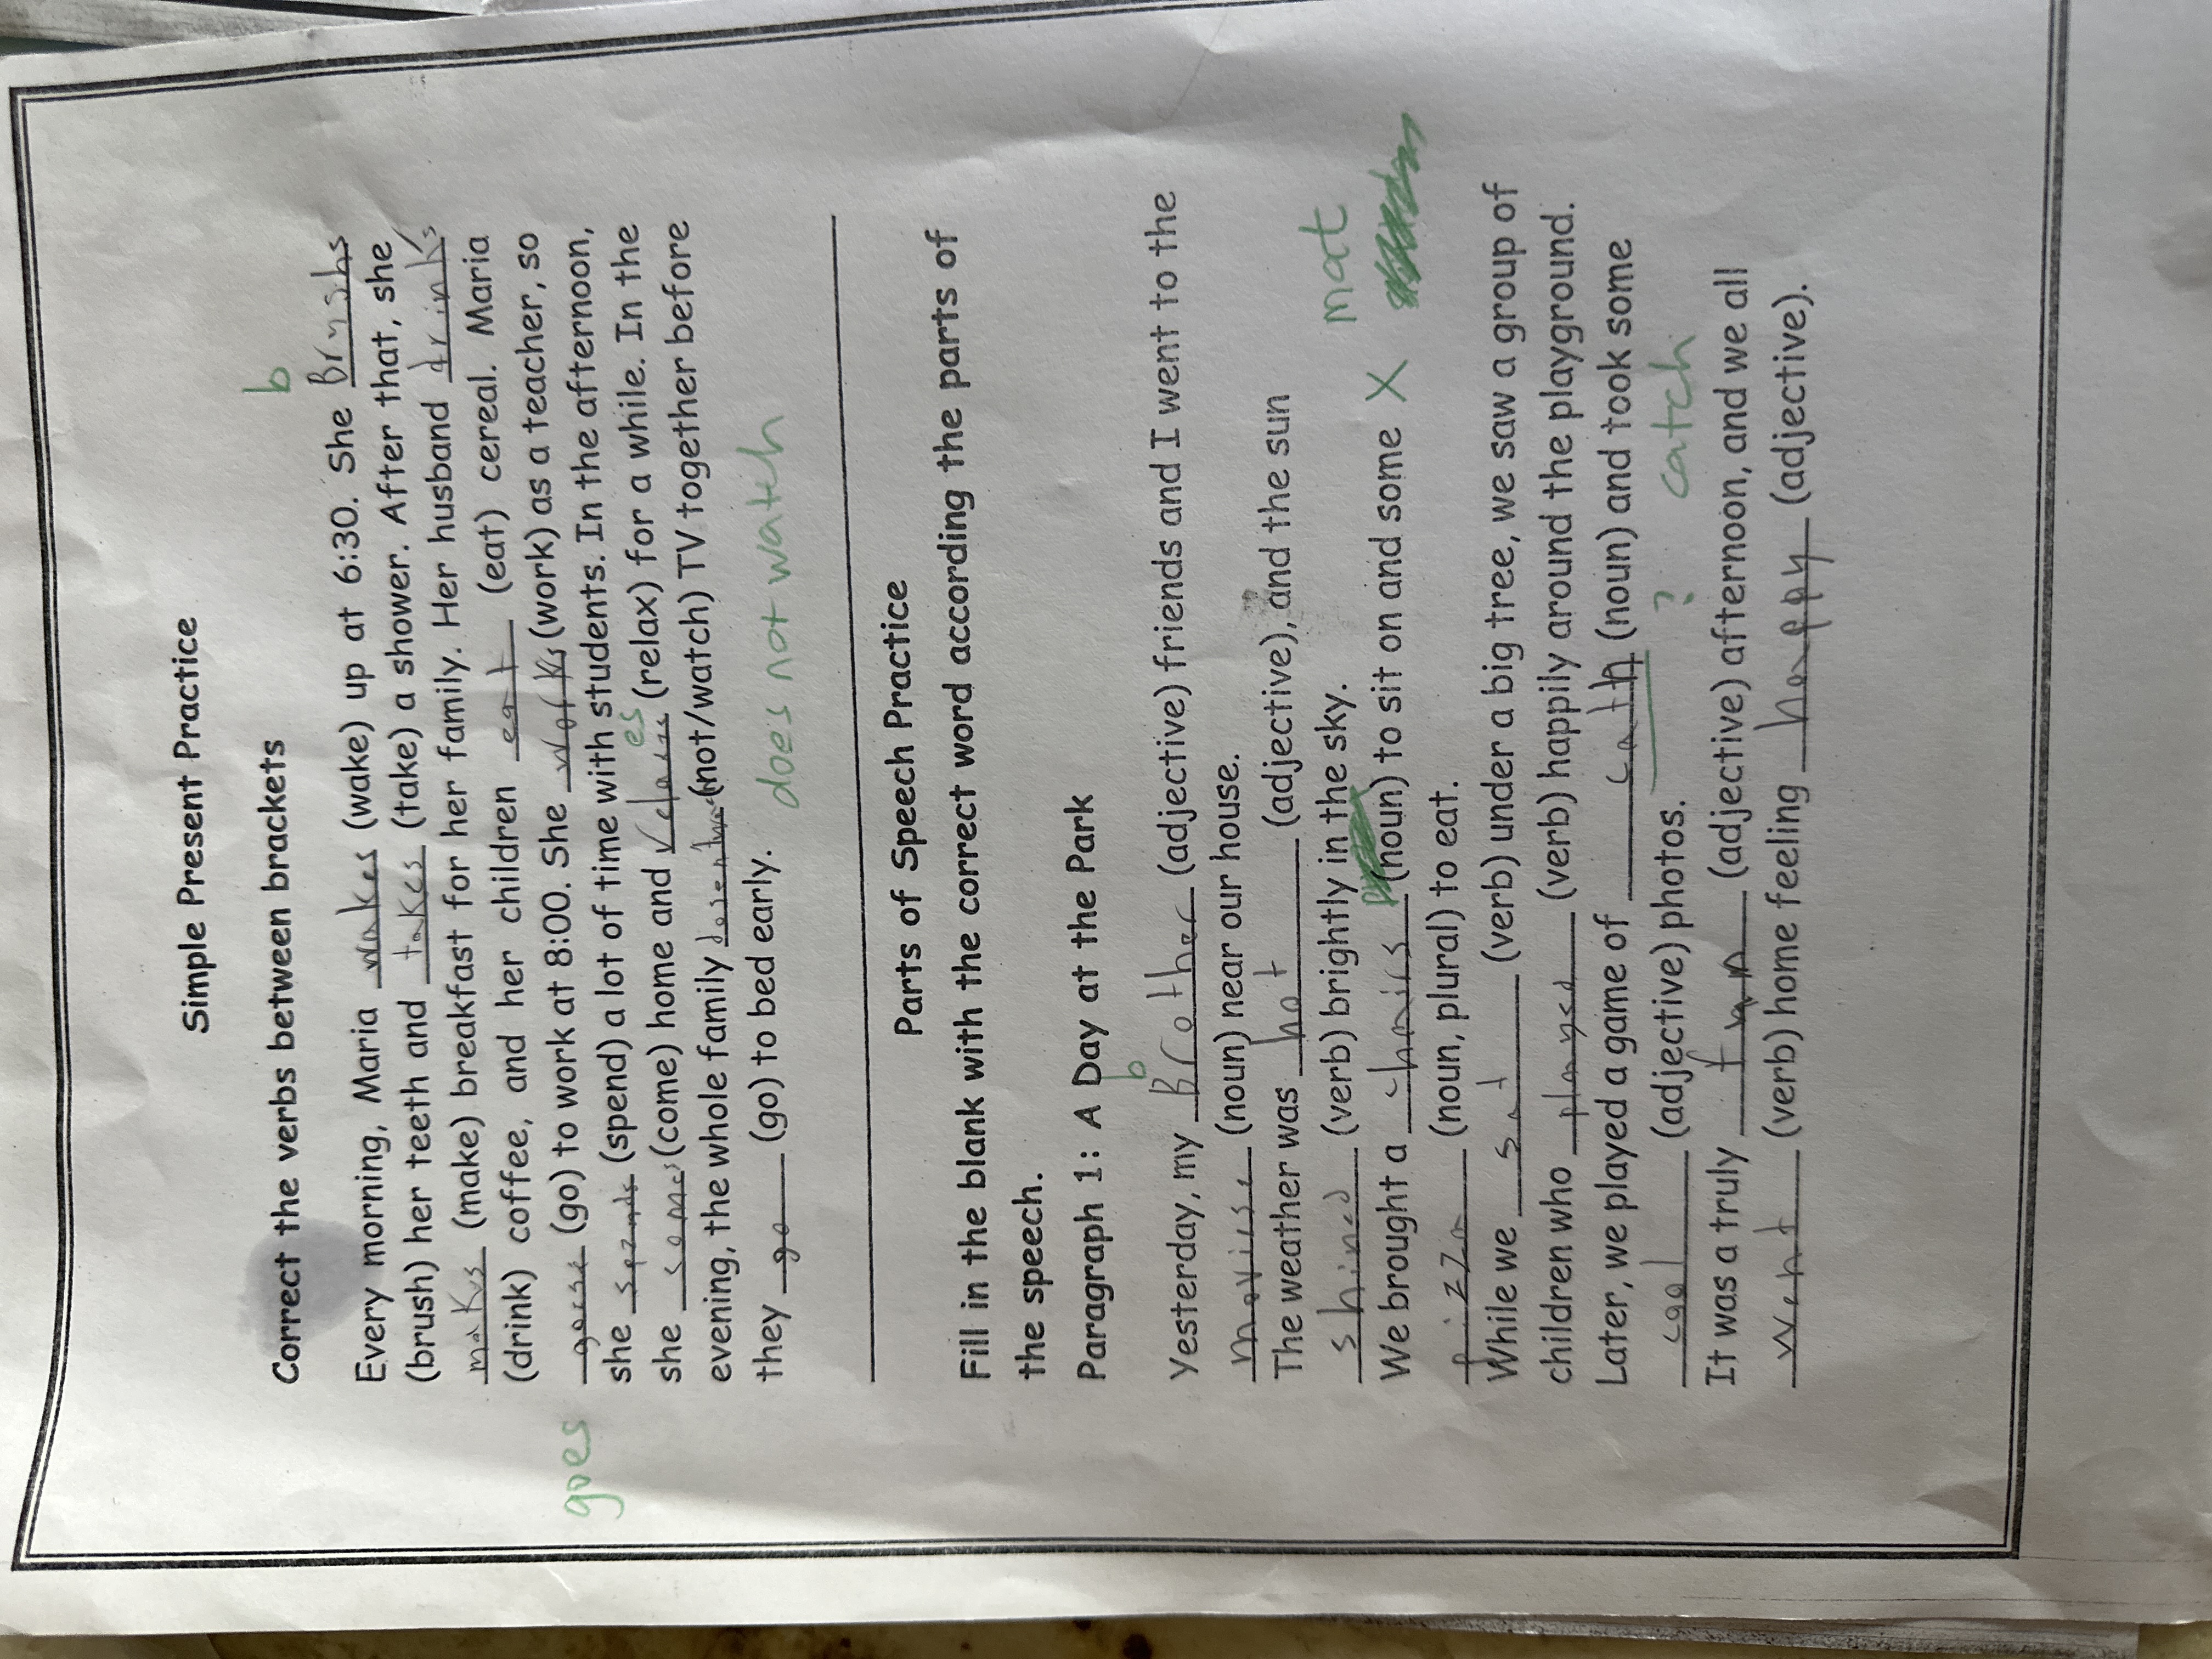 Simple Present Practice
Correct the verbs between brackets
b
Every morning, Maria wakes (wake) up at 6:30. She Brushs
(brush) her teeth and takes (take) a shower. After that, she
makes (make) breakfast for her family. Her husband drinks
(drink) coffee, and her children eat (eat) cereal. Maria
goes
(go) to work at 8:00. She works (work) as a teacher, so
she spends (spend) a lot of time with students. In the afternoon,
es
she (come) home and (relax) for a while. In the
evening, the whole family (not/watch) TV together before
they go (go) to bed early.
does not watch
Parts of Speech Practice
Fill in the blank with the correct word according the parts of
the speech.
Paragraph 1: A Day at the Park
b
Yesterday, my Brother (adjective) friends and I went to the
(noun) near our house.
The weather was hot (adjective), and the sun
shined (verb) brightly in the sky.
mat
We brought a chairs (noun) to sit on and some X
pizza (noun, plural) to eat.
While we sat (verb) under a big tree, we saw a group of
children who played (verb) happily around the playground.
Later, we played a game of (noun) and took some
? catch
cool (adjective) photos.
It was a truly fun (adjective) afternoon, and we all
went (verb) home feeling happy (adjective).